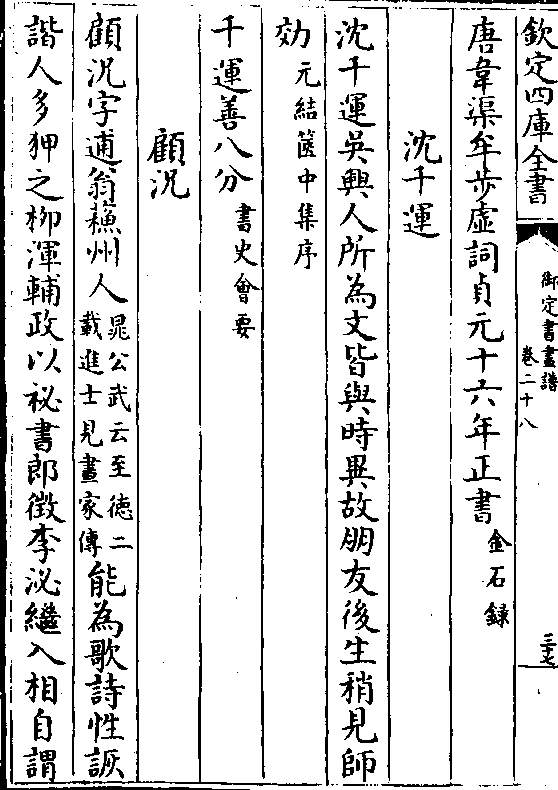 欽定四庫全書
御定書畫譜
卷二十八
三十七
唐韋渠牟步虛詞貞元十六年正書金石錄
沈千運
沈千運吳興人所為文皆與時異故朋友後生稍見師
効元結篋中集序
千運善八分書史會要
顧況
顧況字逋翁蘇州人晁公武云至德二載進士見畫家傳能為歌詩性詼
諧人多狎之柳渾輔政以祕書郎徵李泌繼入相自謂